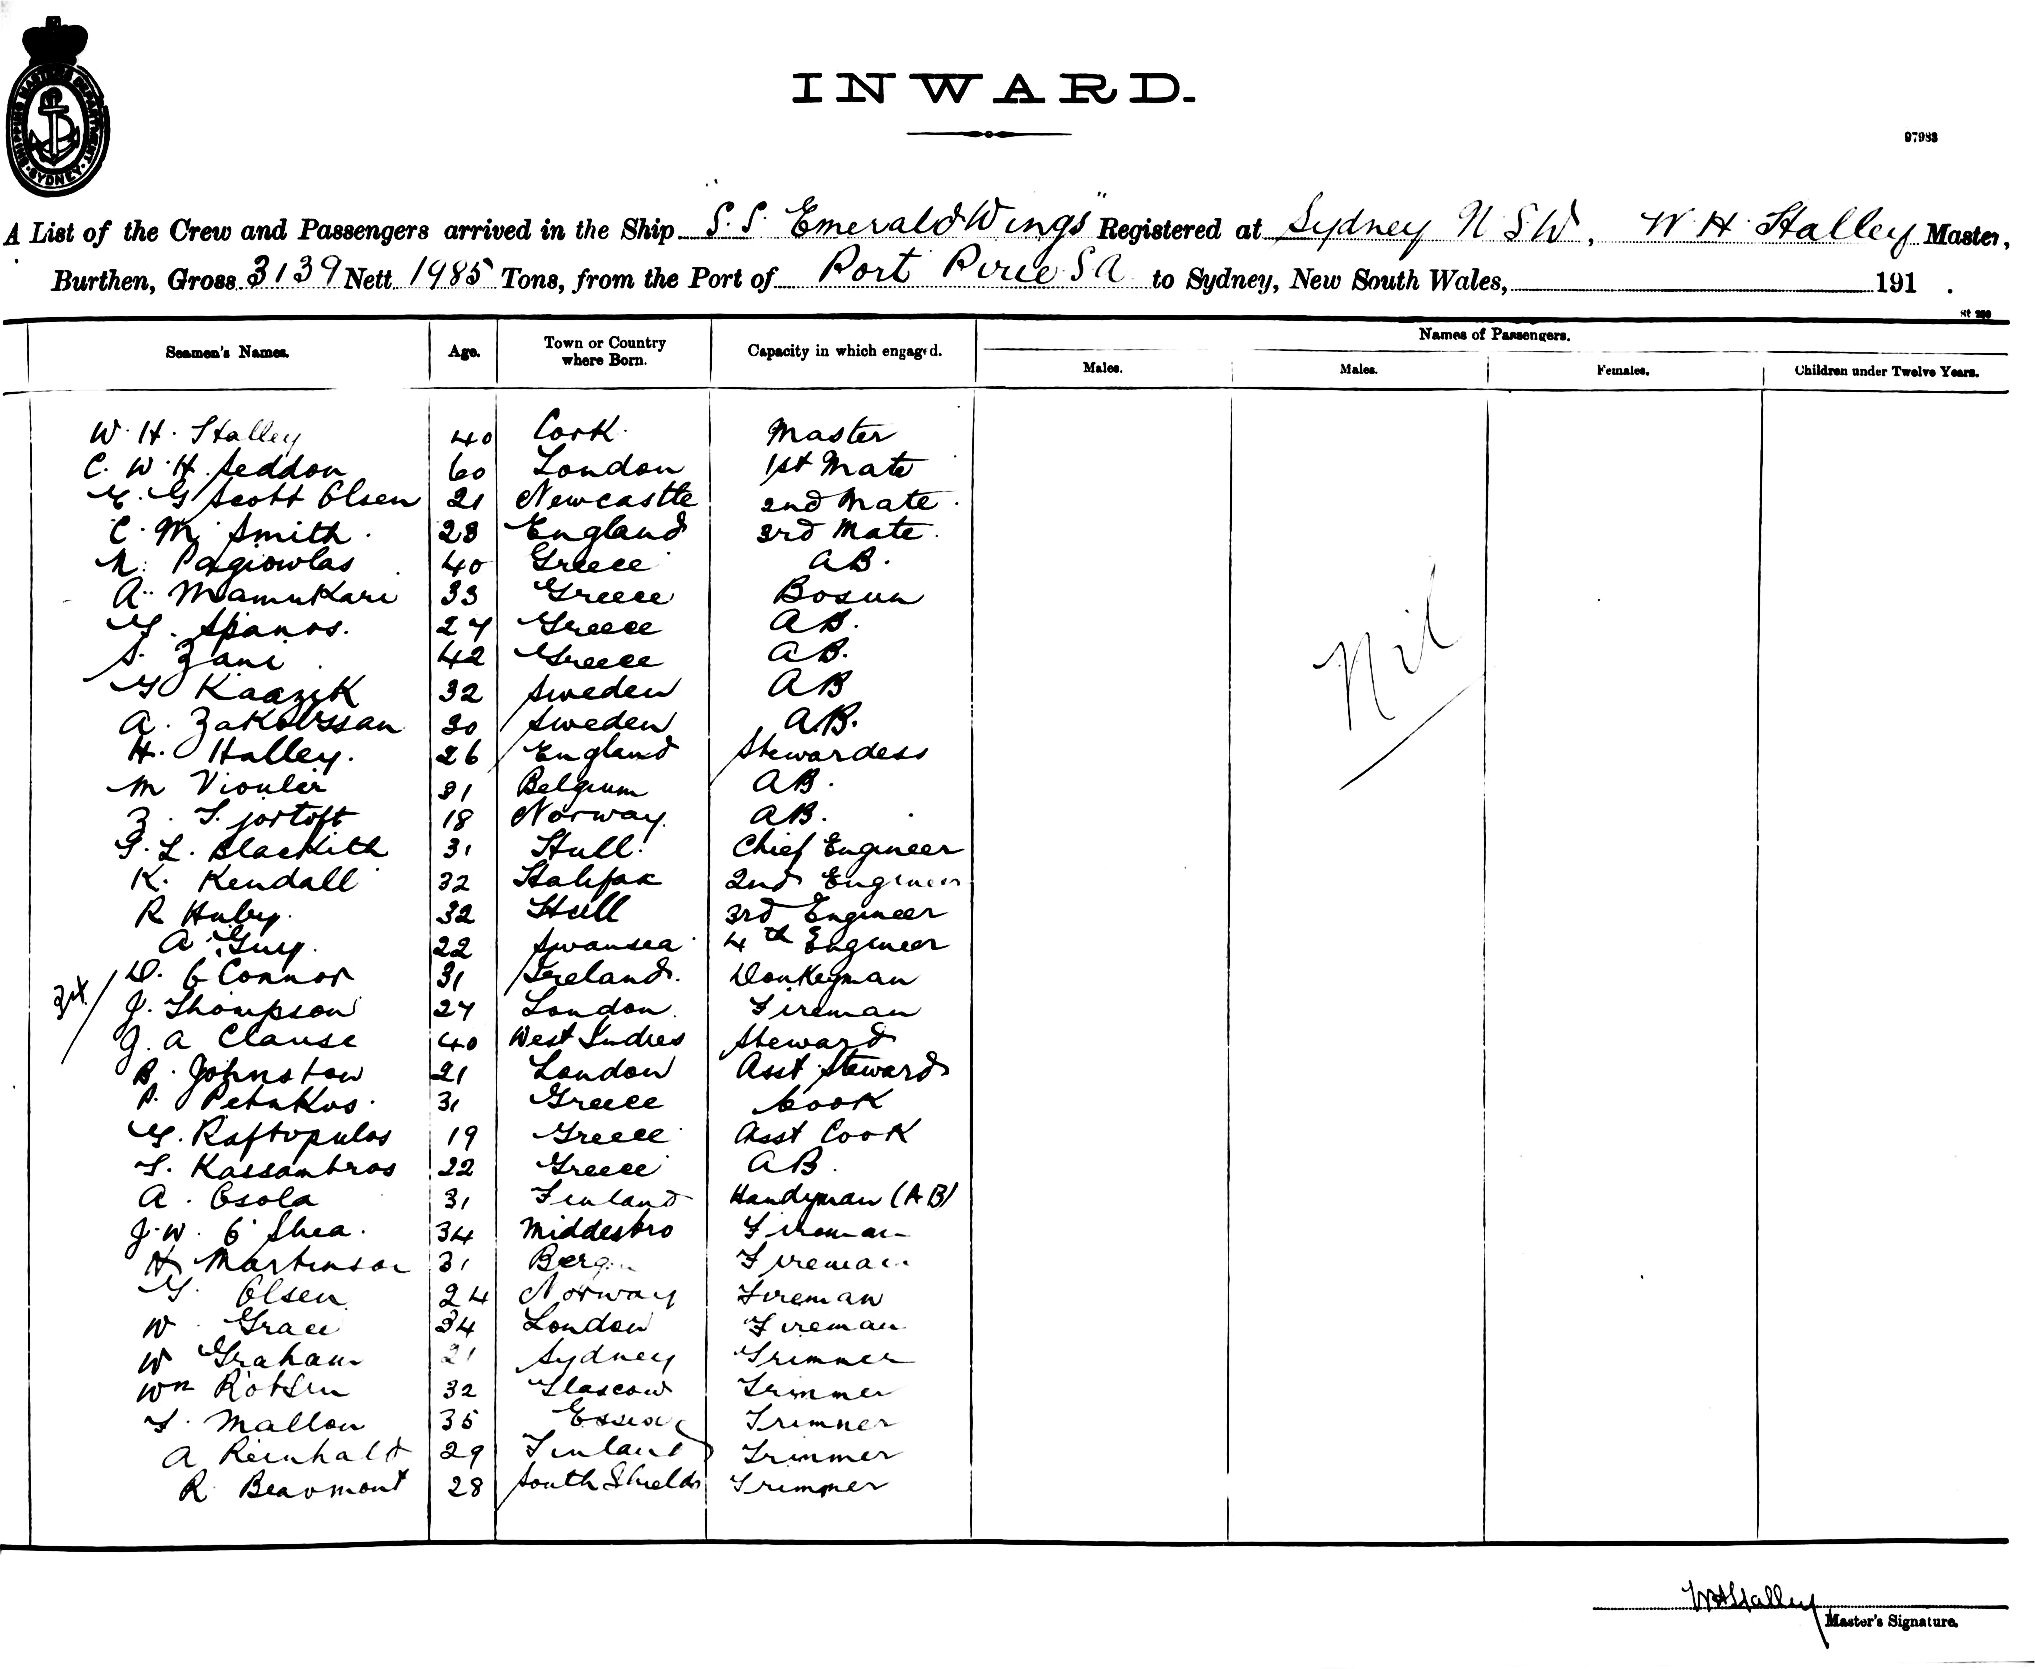 SHIPPING MASTERS DEPARTMENT SYDNEY
INWARD.
97983
A List of the Crew and Passengers arrived in the Ship "S.S. Emerald Wings" Registered at Sydney N S W, W H Halley Master,
Burthen, Gross 3139 Nett 1985 Tons, from the Port of Port Pirie S A to Sydney, New South Wales, 191 .
Names of Passengers.
Seamen's Names. Age. Town or Country where Born. Capacity in which engaged. Males. Males. Females. Children under Twelve Years.
W. H. Halley 40 Cork Master
C. W. H. Seddon 60 London 1st Mate
G Scott Olsen 21 Newcastle 2nd Mate
C. M. Smith 23 England 3rd Mate
N. Pagiowlas 40 Greece AB.
A. Mamukari 33 Greece Bosun
G. Spanos. 27 Greece AB.
S. Zani 42 Greece AB.
G Kaazik 32 Sweden AB
A. Zakovssan 30 Sweden AB.
H. Halley. 26 England Stewardess
M Vioulir 31 Belgium AB.
Z. T. jortoft 18 Norway. AB.
G. L. Blacklith 31 Hull. Chief Engineer
K. Kendall 32 Halifax 2nd Engineer
R Huby. 32 Hull 3rd Engineer
A. Guy. 22 Swansea 4th Engineer
D. O'Connor 31 Ireland. Donkeyman
J. Thompson 27 London. Fireman
J. A Clause 40 West Indies Steward
B. Johnston 21 London Asst Steward
P. Petakos. 31 Greece Cook
G. Raftopulos 19 Greece Asst Cook
T. Kassambros 22 Greece AB
A. Osola 31 Finland Handyman (AB)
J. W. O'Shea. 34 Middesbro Fireman
H Martinson 31 Bergen Fireman
G. Olsen 24 Norway Fireman
W Grace 34 London Fireman
W Graham 21 Sydney Trimmer
Wm Robson 32 Glascow Trimmer
T. Mallon 35 Essex Trimmer
A Reinhalt 29 Finland Trimmer
R. Beaumont 28 South Shields Trimmer
Nil
WH Halley
Master's Signature.